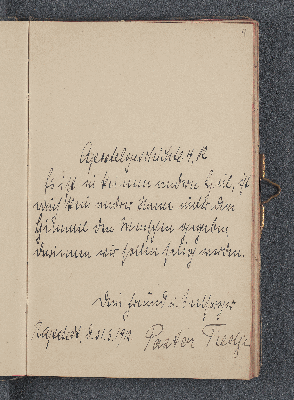 Apostelgeschichte 4, 12
Es ist in keinem andern Heil, ist
auch kein andrer Name unter dem
Himmel den Menschen gegeben,
darinnen wir sollen selig werden.
Dein Freund u.
d. 31.3.1912 Pastor